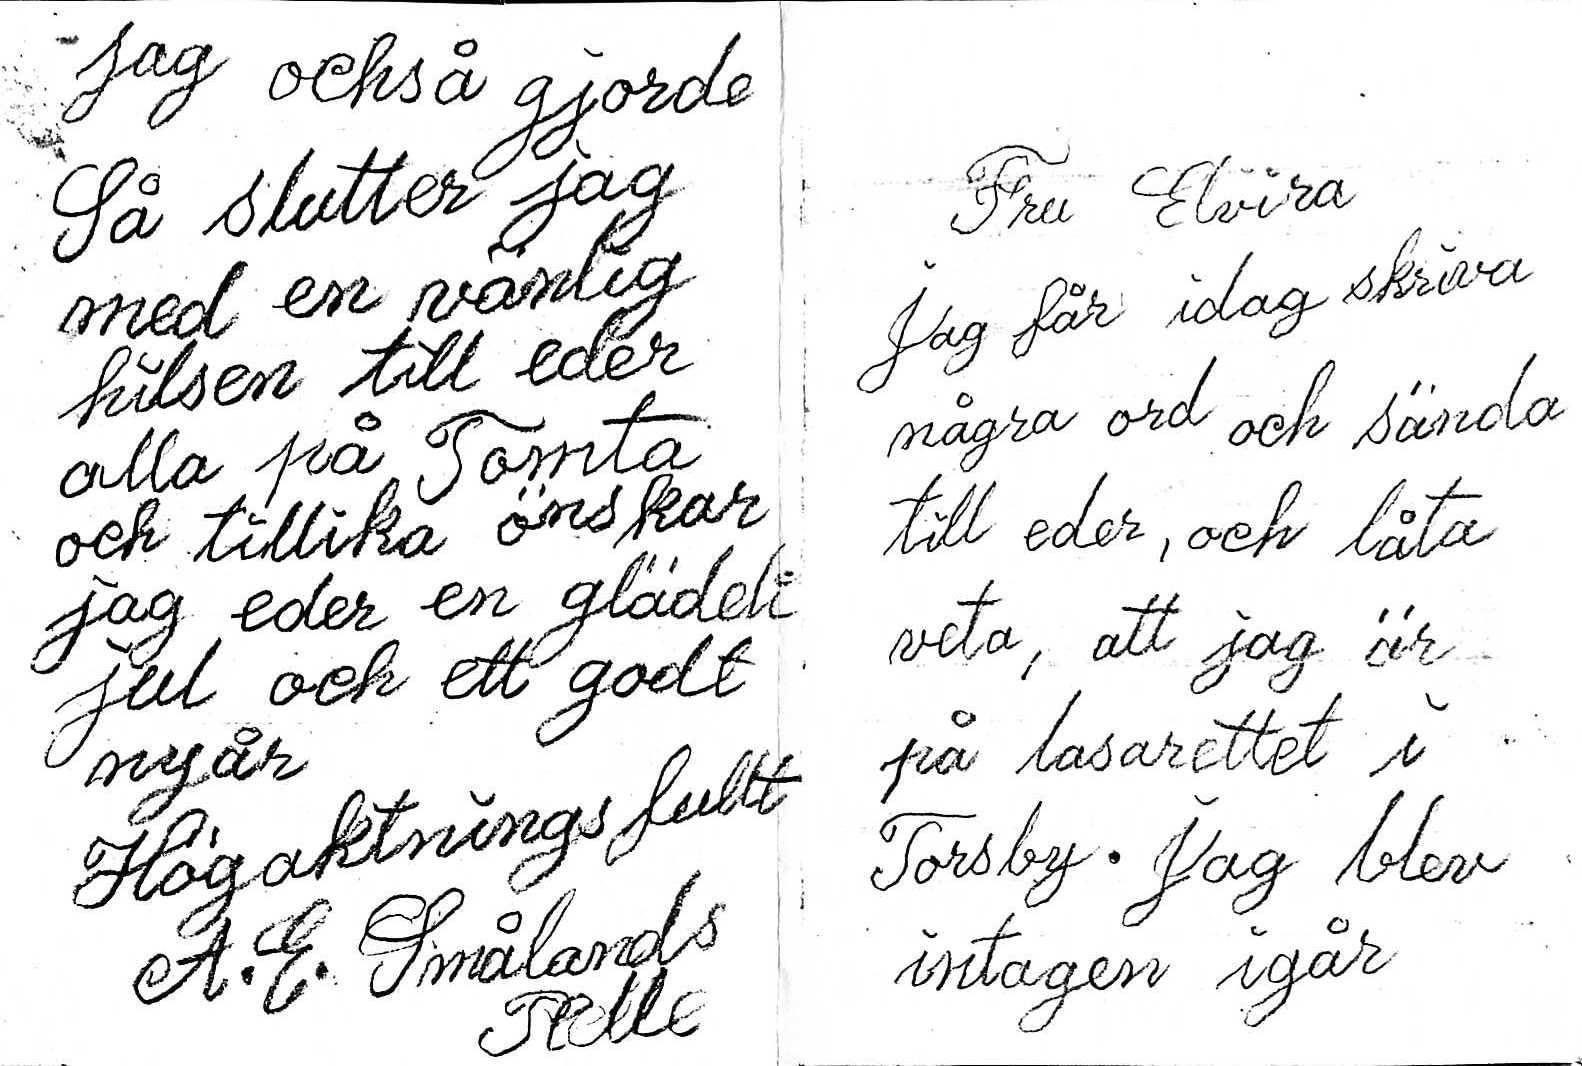 jag också gjorde
Så slutter jag
med en vänlig
hilsen till eder
alla på Tomta
och tillika önskar
jag eder en glädeli
jul och ett godt
nyår
Högaktningsfullt
A. E. Smålands
Fru Elvira
Jag får idag skriva
några ord och sända
till eder, och låta
veta, att jag är
på lasarettet i
Torsby. Jag blev
intagen igår